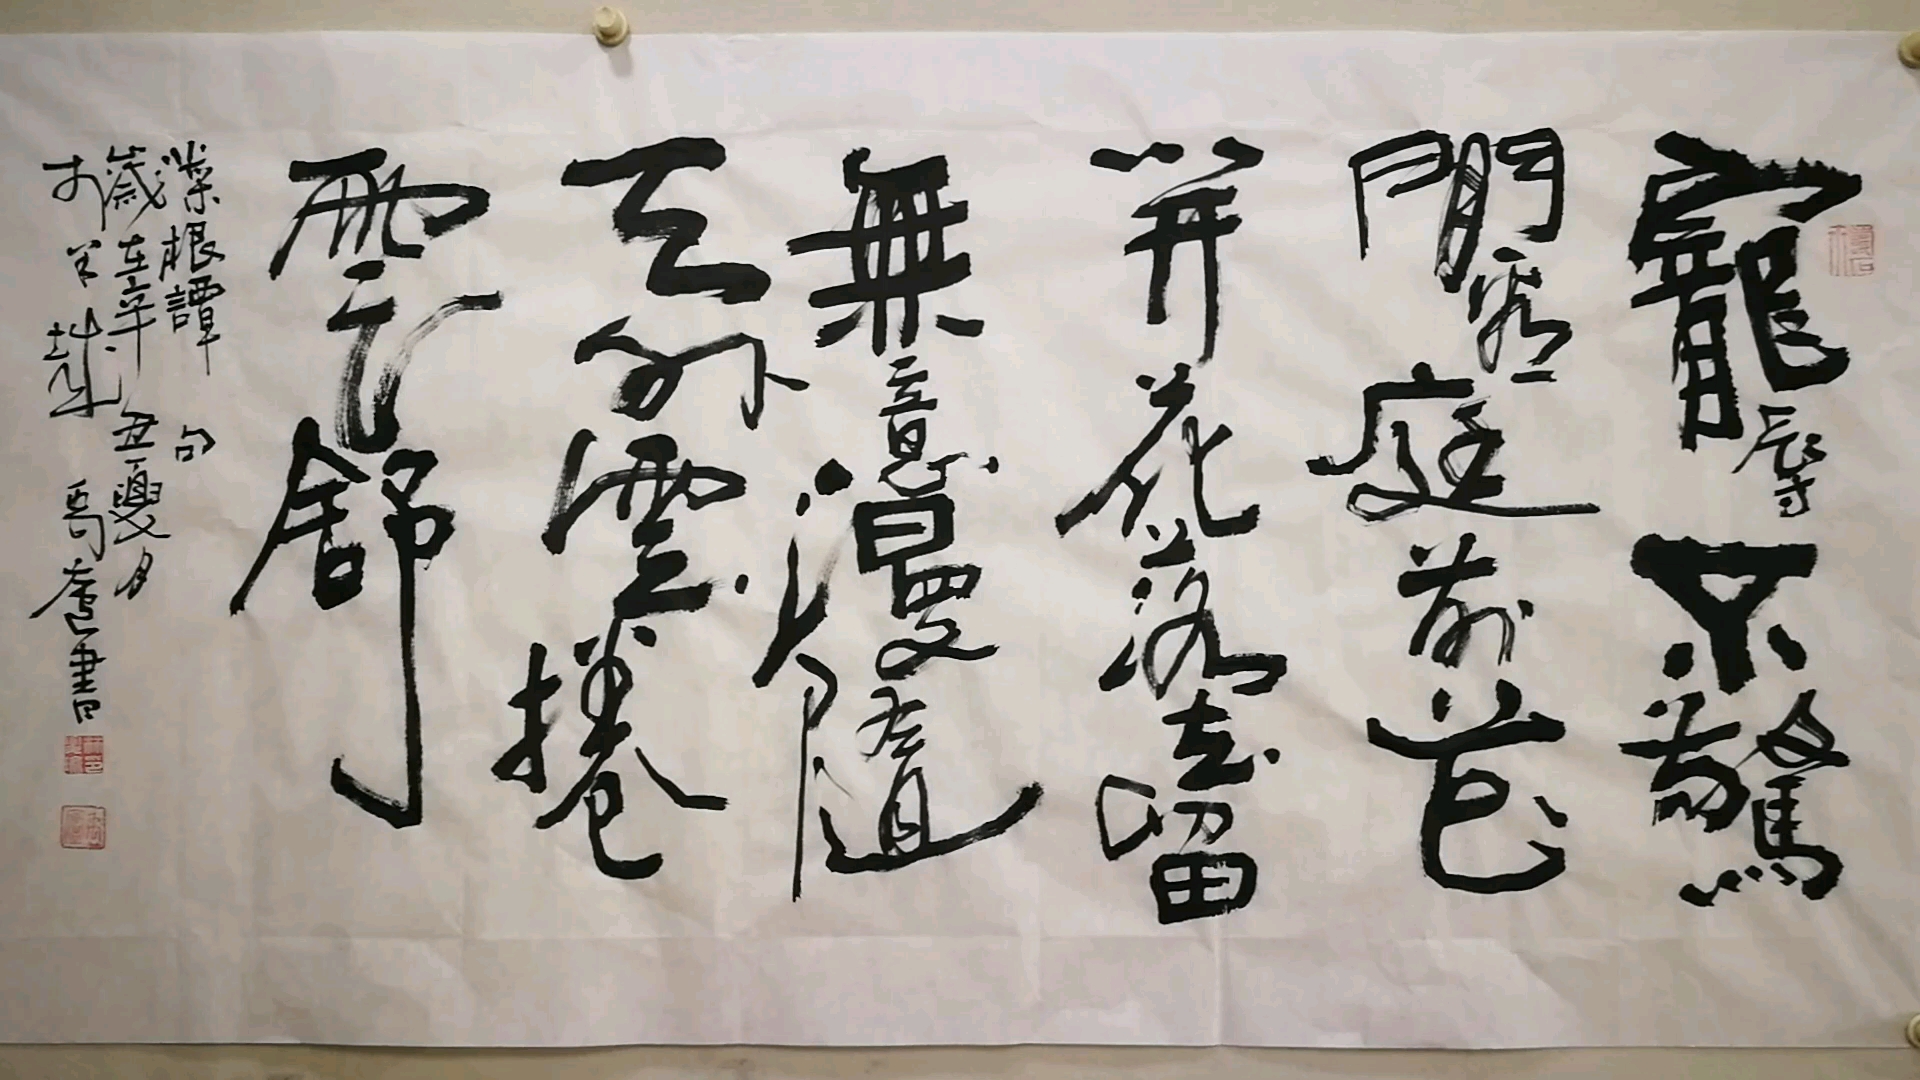 寵辱不驚
閒看庭前花
开花落去留
無意漫隨
天外雲捲
雲舒
菜根譚句
歲在辛丑夏月
書